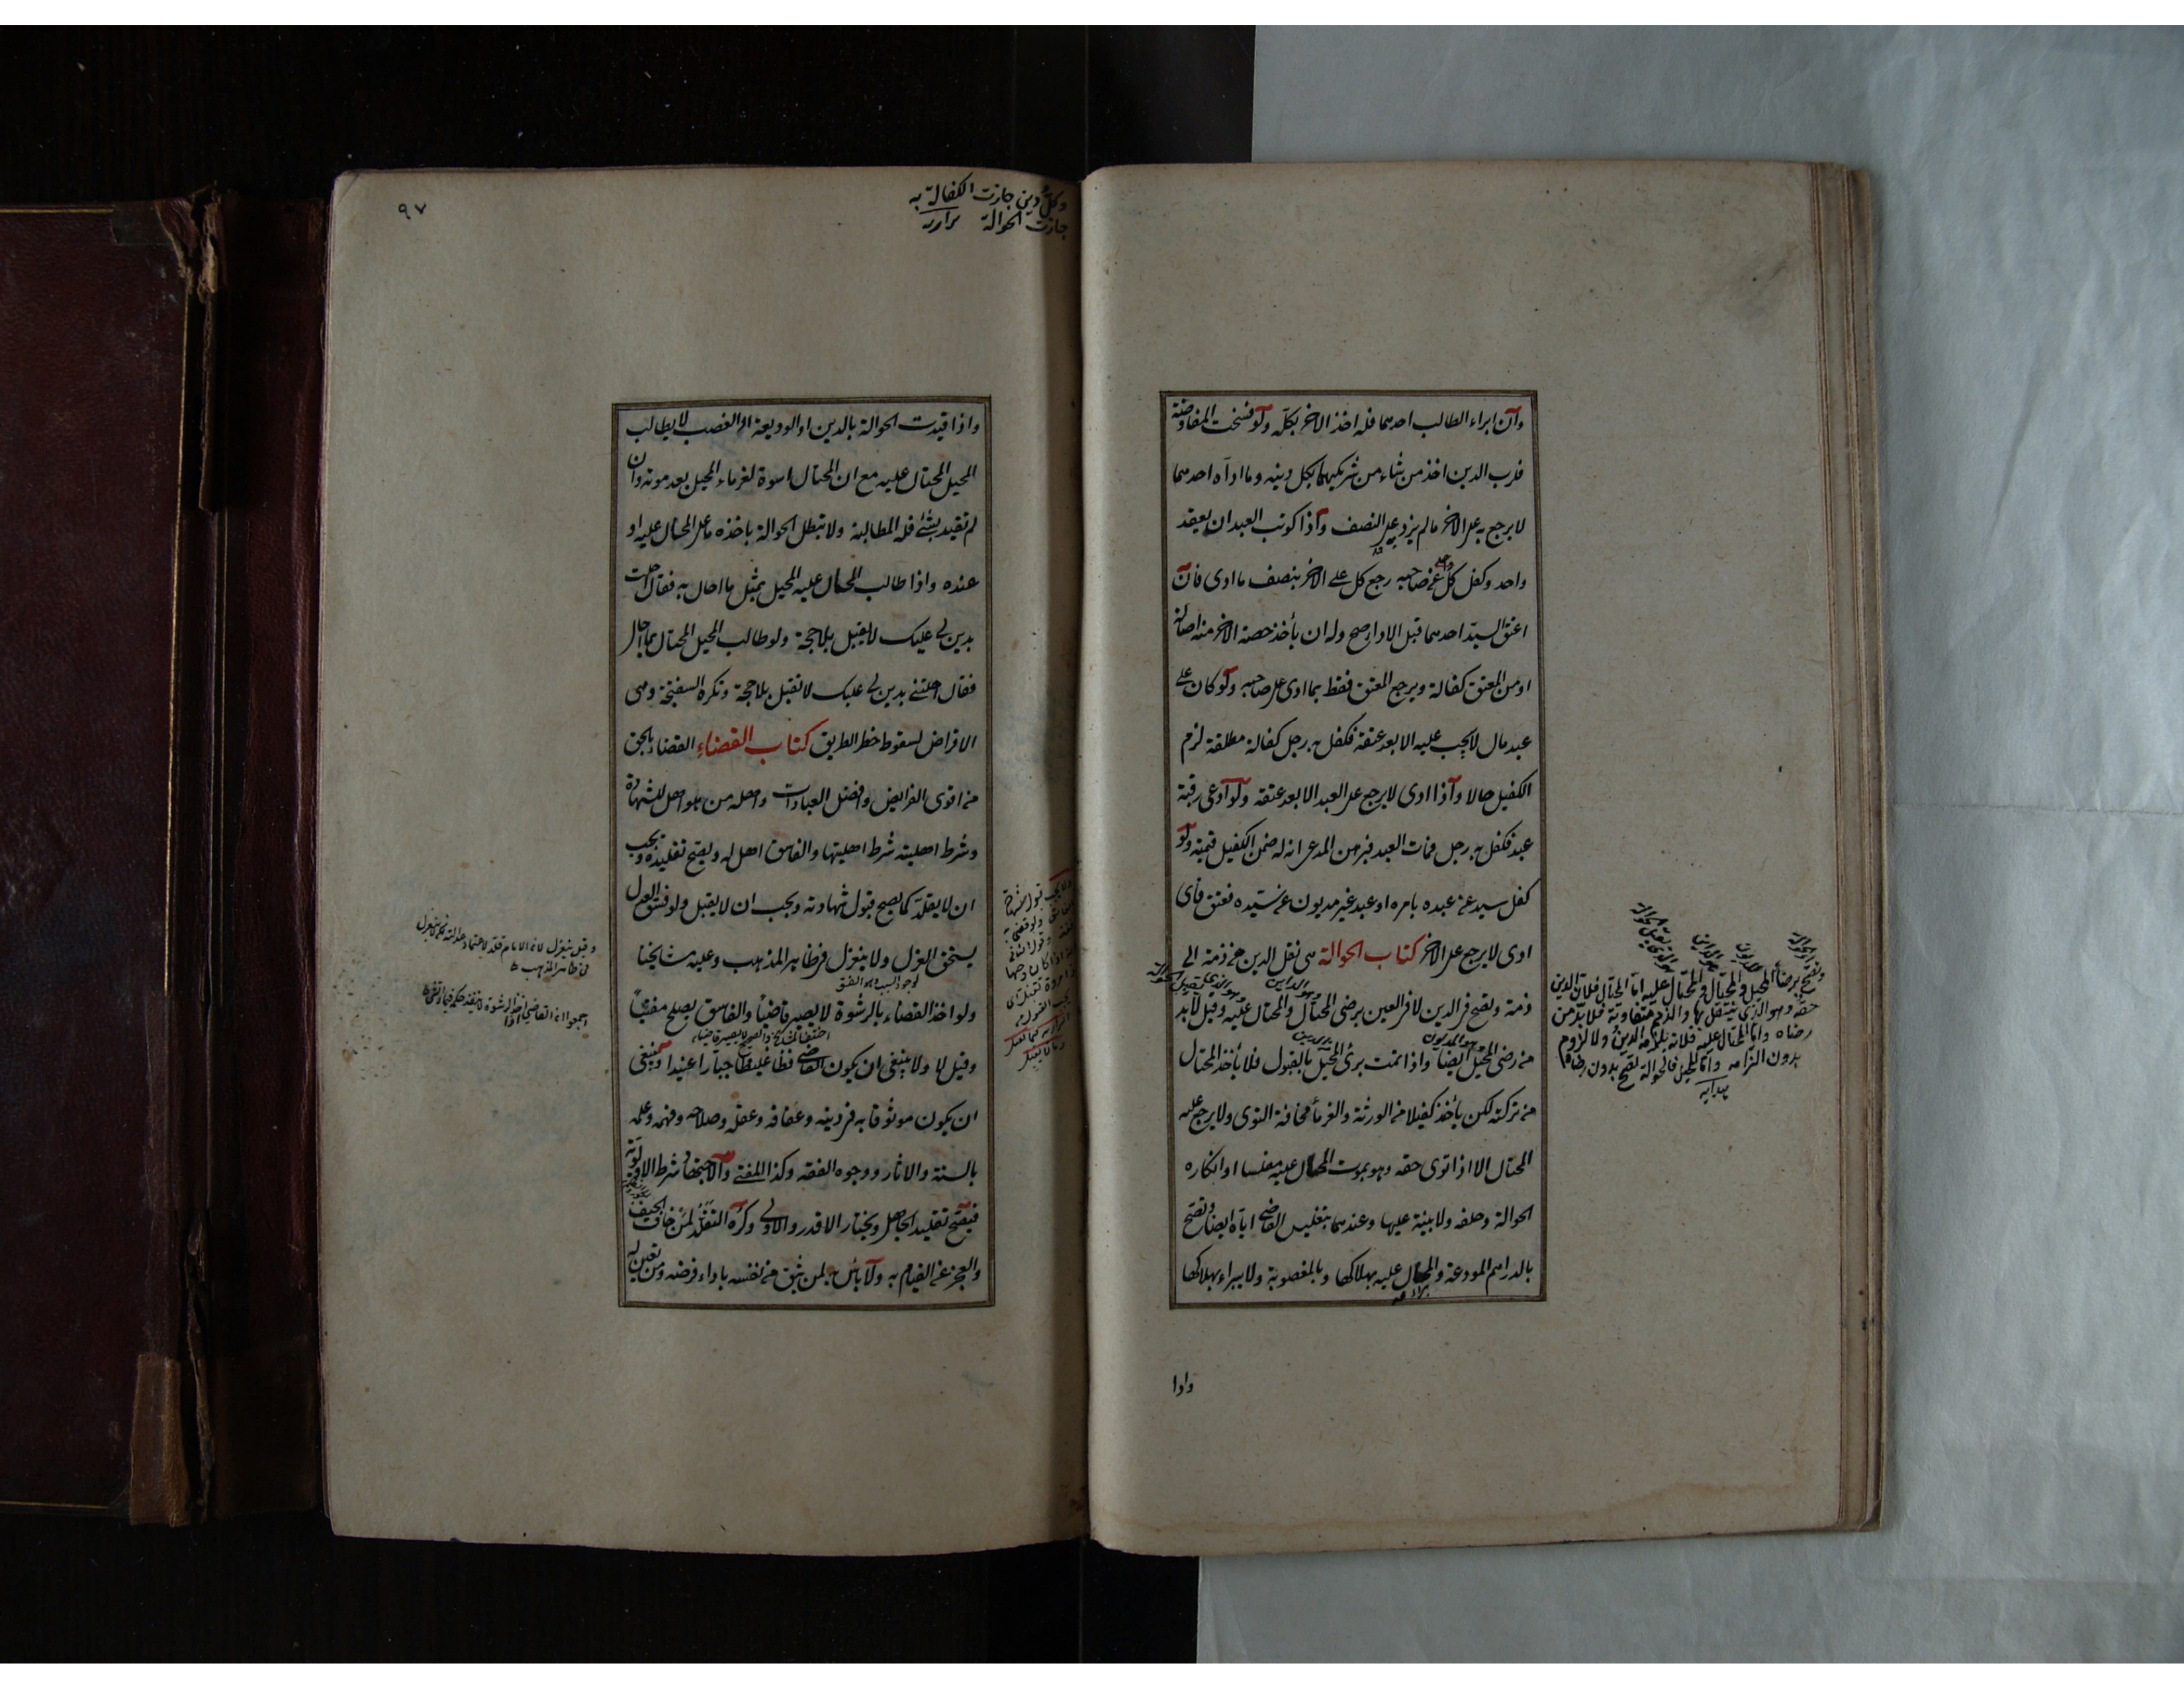 وان ابراء الطالب احدهما فله اخذ الاخر بكله ولو فسخت المفاوضة
فلرب الدين اخذ من شاء من شريكيهما بكل دينه وما اداه احدهما
لا يرجع به على الاخر ما لم يزد على النصف واذا كوتب العبدان بعقد
واحد وكفل كل عن صاحبه رجع كل على الاخر بنصف ما ادى فان
اعتق السيد احدهما قبل الاداء صح وله ان يأخذ حصة الاخر منه اصالة
او من المعتق كفالة ويرجع المعتق فقط بما ادى على صاحبه ولو كان على
عبد مال لا يجب عليه الا بعد عتقه فكفل به رجل كفالة مطلقة لزم
الكفيل حالا واذا ادى لا يرجع على العبد الا بعد عتقه ولو ادعى رقبة
عبد فكفل به رجل فمات العبد فبرهن المدعى انه له ضمن الكفيل قيمته ولو
كفل سيد عن عبده بامره او عبد غير مديون عن سيده فعتق فاى
ادى لا يرجع على الاخر كتاب الحوالة هى نقل الدين من ذمة الى
ذمة وتصح فى الدين لا فى العين برضى المحتال والمحتال عليه وقيل لا بد
من رضى المحيل ايضا واذا تمت برئ المحيل بالقبول فلا يأخذ المحتال
من تركته لكن يأخذ كفيلا من الورثة والغرماء مخافة التوى ولا يرجع عليه
المحتال الا اذا توى حقه وهو بموت المحتال عليه مفلسا او انكاره
الحوالة وحلفه ولا بينة عليها وعندهما بتفليس القاضى اياه ايضا وتصح
بالدراهم المودعة والمحتال عليه بهلاكها وبالمغصوبة ولا يبراء بهلاكها
واذا
وتصح برضاء المحيل والمحتال والمحتال عليه اما المحتال فلان الدين
حقه وهو الذى ينتقل بها والذمم متفاوتة فلا بد من
رضاه واما المحتال عليه فلانه يلزمه الدين ولا لزوم
بدون التزامه واما المحيل فالحوالة تصح بدون رضاه
هدايه
٩٧
وكل دين جازت الكفالة به
جازت الحوالة
واذا قيدت الحوالة بالدين او الوديعة او الغصب لا يطالب
المحيل المحتال عليه مع ان المحتال اسوة لغرماء المحيل بعد موته وان
لم تقيد بشئ فله المطالبة ولا تبطل الحوالة باخذه ما على المحتال عليه او
عنده واذا طالب المحتال عليه المحيل بمثل ما احال به فقال احلت
بدين لى عليك لا يقبل بلا حجة ولو طالب المحيل المحتال بما احال
فقال احلتنى بدين لى عليك لا تقبل بلا حجة وتكره السفتجة وهى
الاقراض لسقوط خطر الطريق كتاب القضاء القضاء بالحق
من اقوى الفرايض وافضل العبادات واهله من هو اهل للشهادة
وشرط اهليته شرط اهليتها والفاسق اهل له ويصح تقليده ويجب
ان لا يقلد كما يصح قبول شهادته ويجب ان لا يقبل ولو فسق العدل
يستحق العزل ولا ينعزل فى ظاهر المذهب وعليه مشايخنا
ولو اخذ القضاء بالرشوة لا يصير قاضيا والفاسق يصلح مفتيا
وقيل لا ولا ينبغى ان يكون القاضى فظا غليظا جبارا عنيدا وينبغى
ان يكون موثوقا به فى دينه وعفافه وعقله وصلاحه وفهمه وعلمه
بالسنة والاثار ووجوه الفقه وكذا المفتى والاجتهاد شرط الاولوية
فيصح تقليد الجاهل ويختار الاقدر والاولى وكره التقلد لمن خاف الحيف
والعجز عن القيام به ولا بأس به لمن يثق من نفسه باداء فرضه ومن تعين له
وقيل ينعزل لان الامام قلده لاعتماد عدالته فلم ينعزل
فى ظاهر المذهب
اجمعوا انه القاضى اذا اخذ الرشوة لا ينفذ حكمه فيما ارتشى